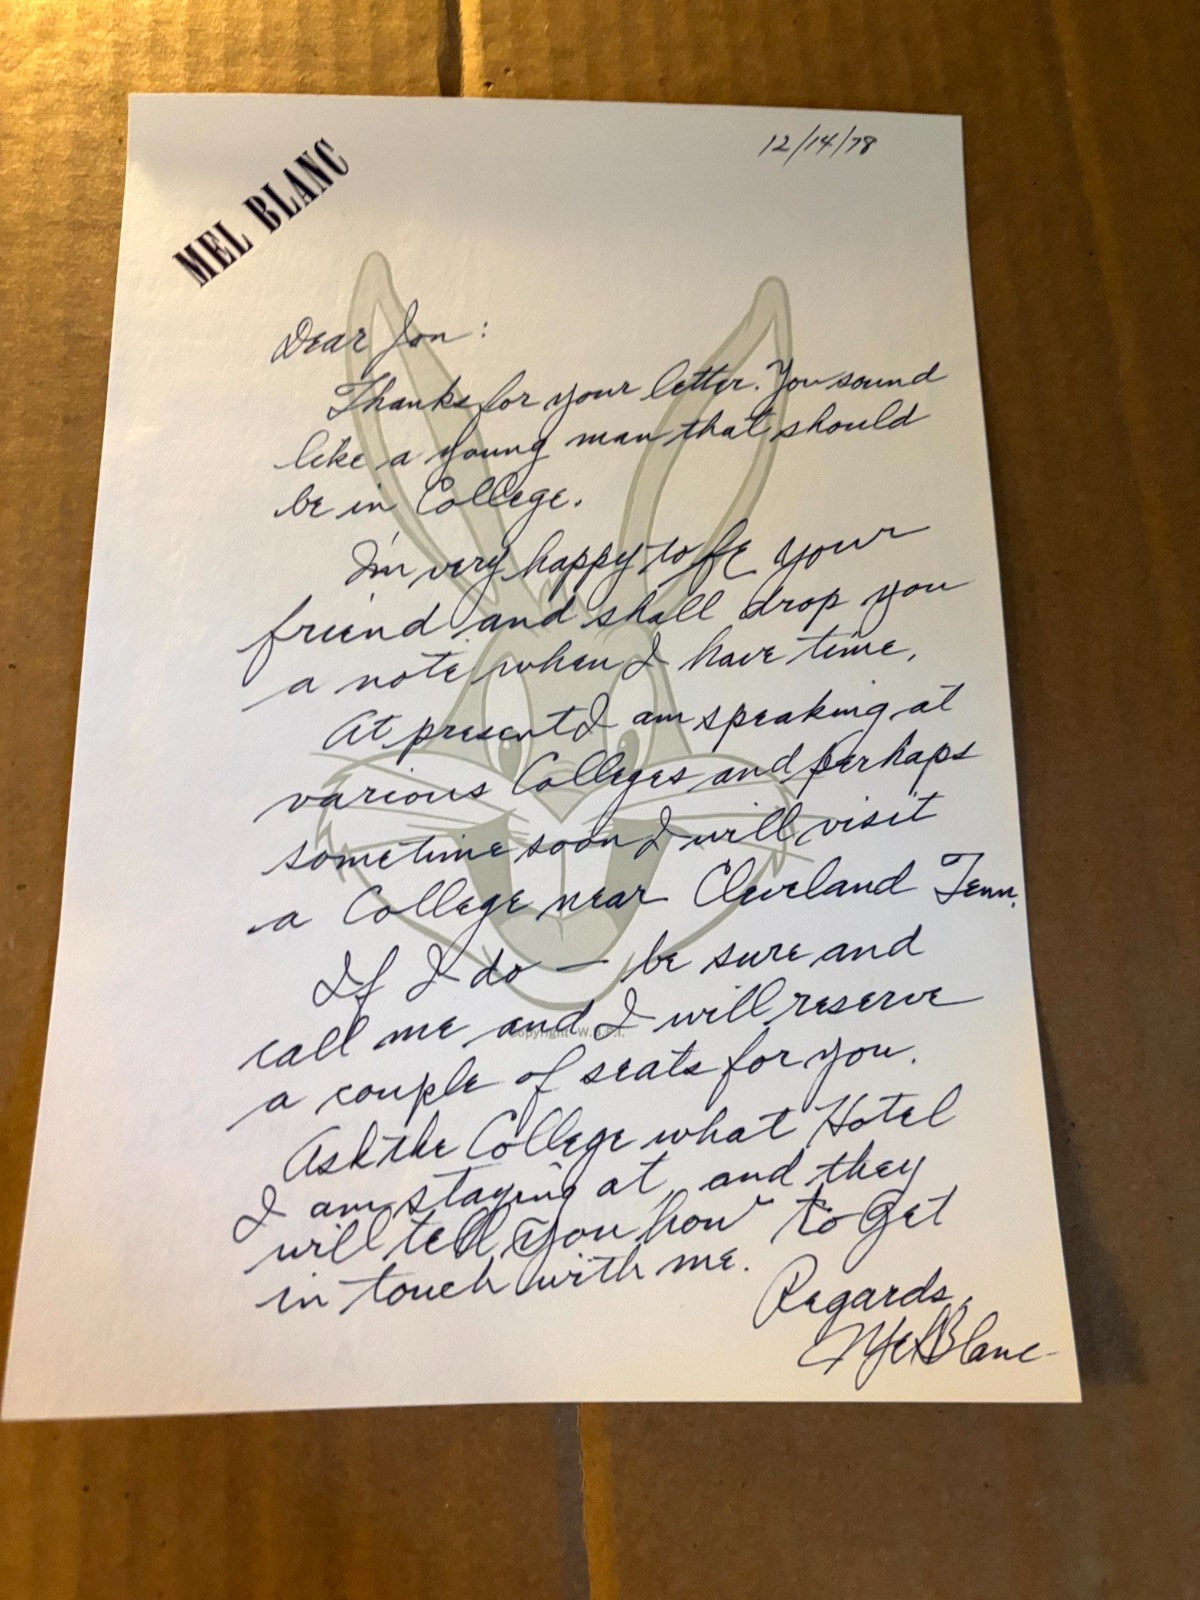 MEL BLANC
12/14/78
Dear Jon:
Thanks for your letter. You sound
like a young man that should
be in College.
I'm very happy to be your
friend and shall drop you
a note when I have time.
At present I am speaking at
various Colleges and perhaps
sometime soon I will visit
a College near Cleveland Tenn.
If I do — be sure and
call me and I will reserve
a couple of seats for you.
Ask the College what Hotel
I am staying at, and they
will tell you how to get
in touch with me.
Regards,
Mel Blanc
Copyright W.B.I.